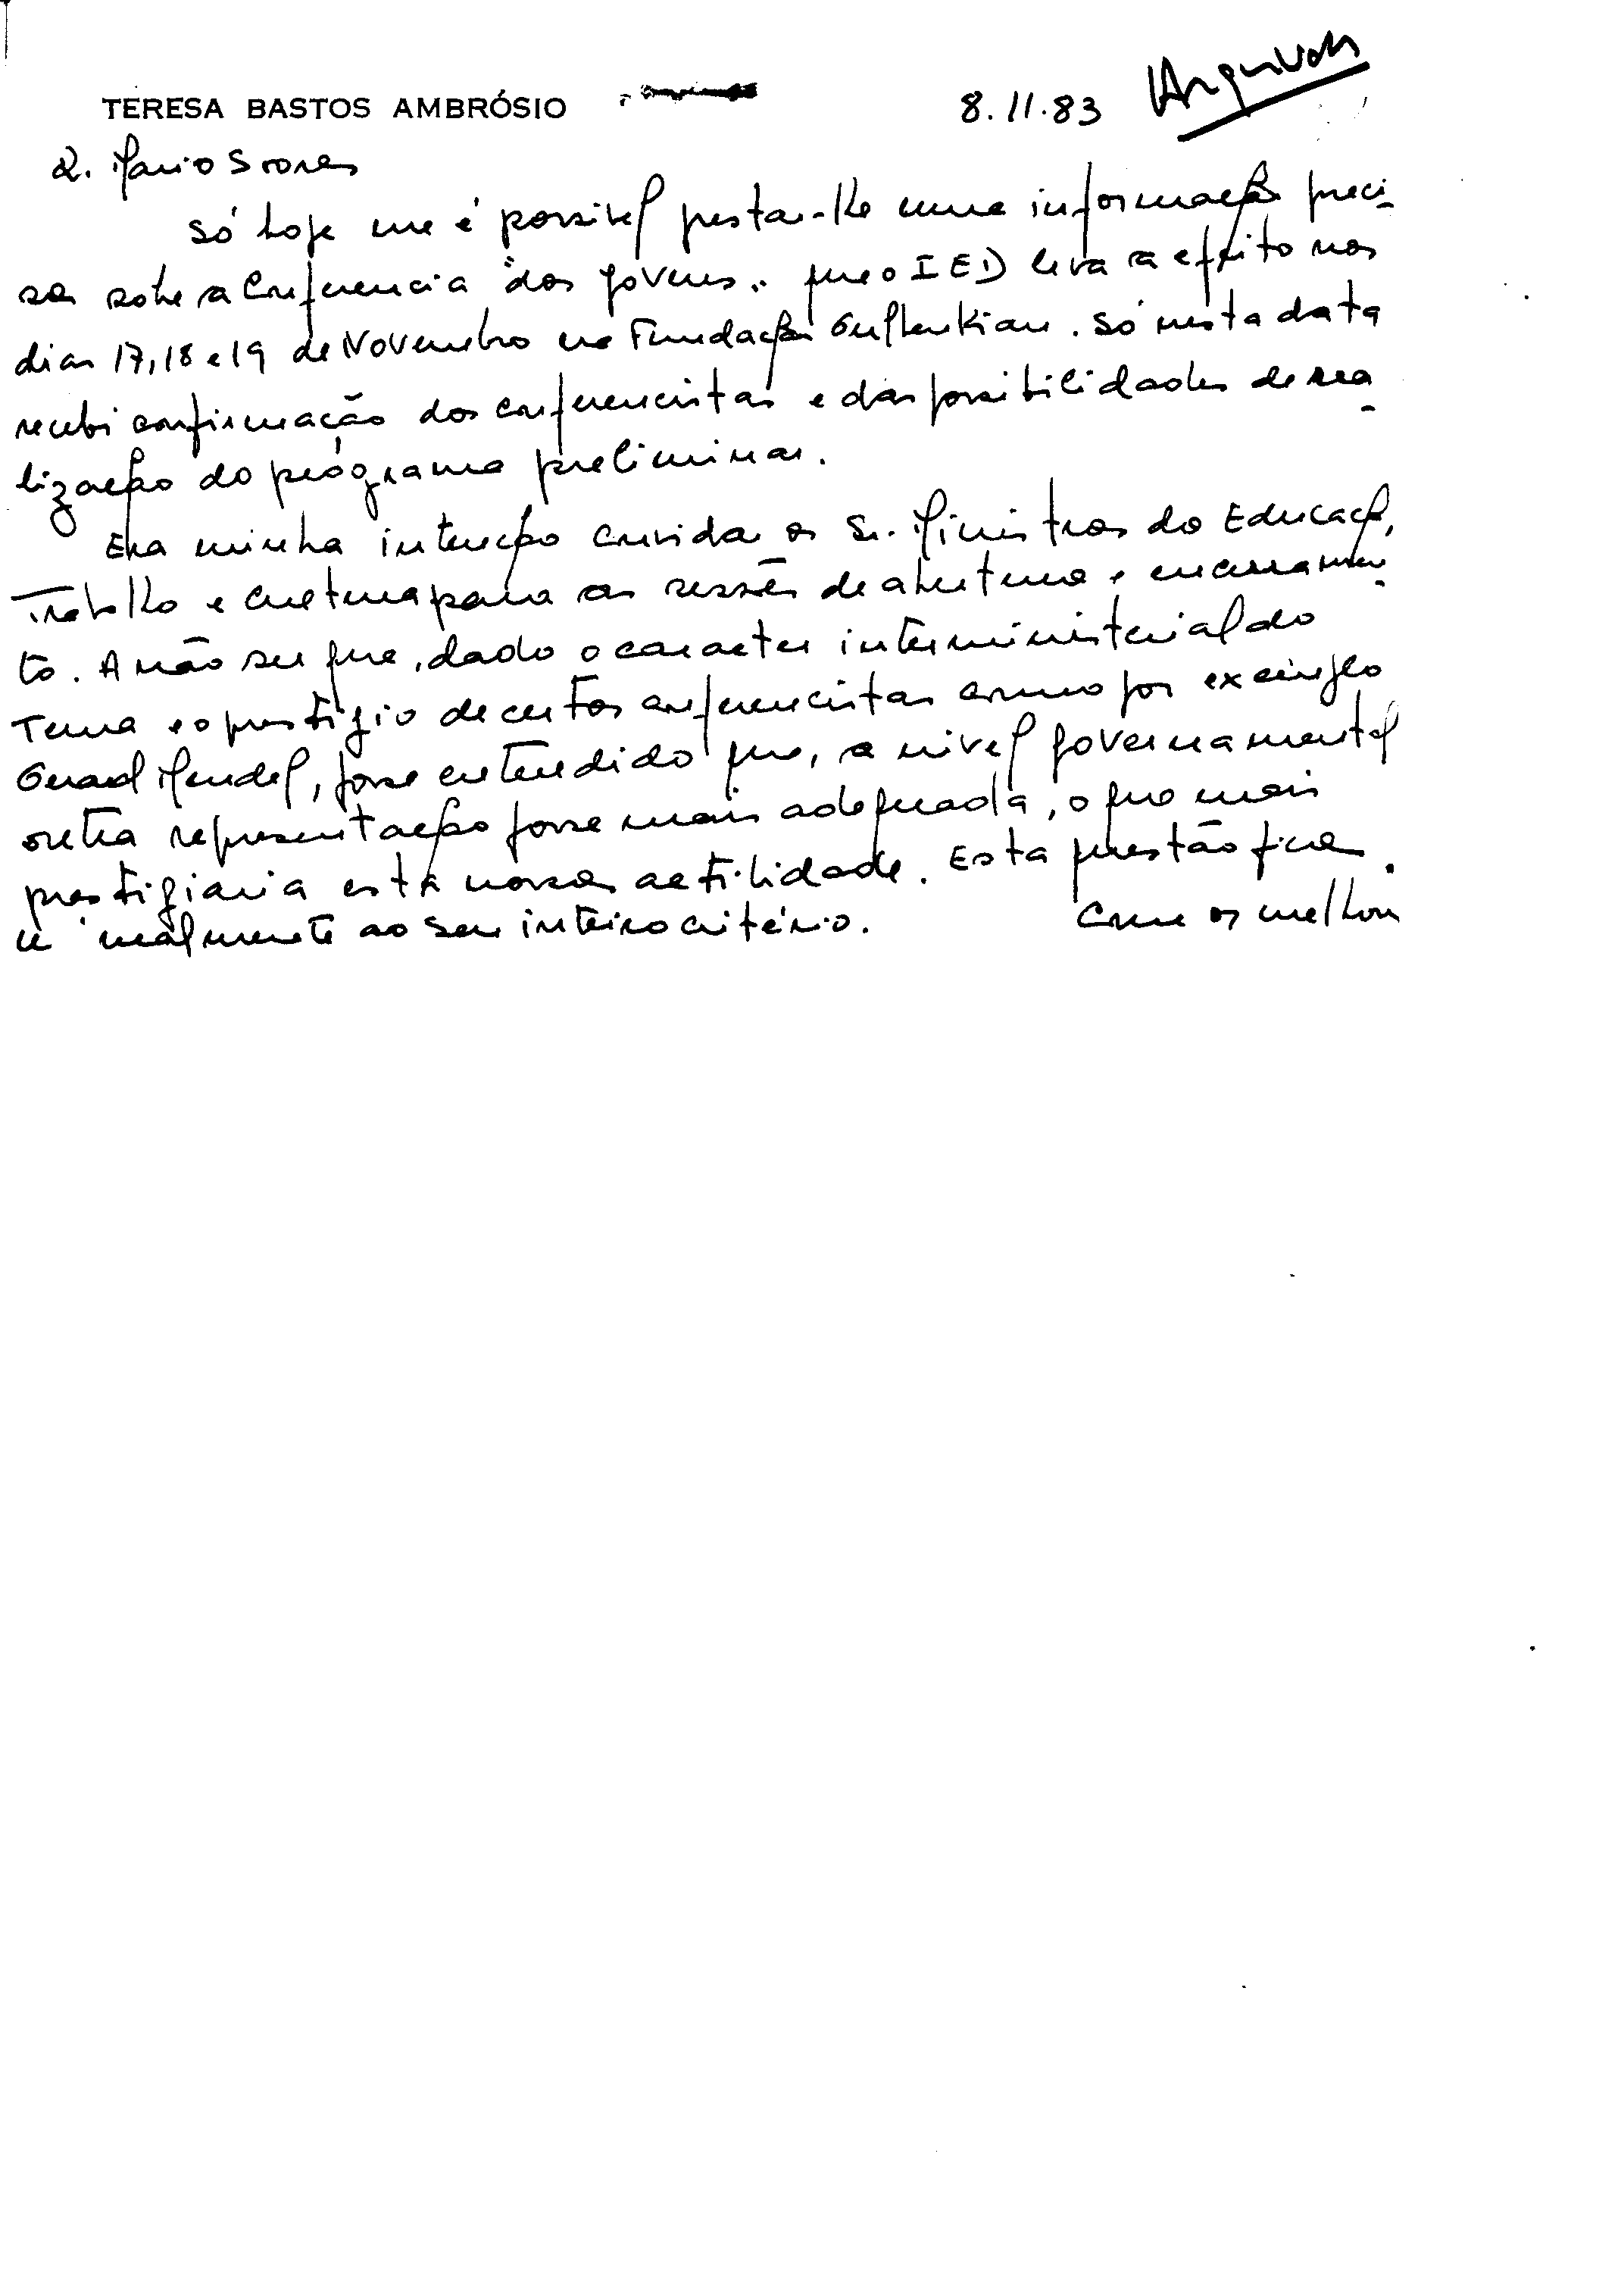 TERESA BASTOS AMBRÓSIO
8.11.83 Arquivar
Dr. Mario Soares
Só hoje me é possivel prestar-lhe uma informação preci-
sa sobre a Conferencia "dos jovens" que o IED leva a efeito nos
dias 17, 18 e 19 de Novembro na Fundação Gulbenkian. Só nesta data
recebi confirmação dos conferencistas e das possibilidades de rea-
lização do programa preliminar.
Era minha intenção convidar os Srs. Ministros da Educação,
Trabalho e Cultura para as sessões de abertura e encerramen-
to. A não ser que, dado o caracter interministerial do
Tema e o prestigio de certos conferencistas como por exemplo
Gerard Mendel, fosse entendido que, a nivel governamental
outra representação fosse mais adequada, o que mais
prestigiaria esta nossa actividade. Esta questão fica
naturalmente ao seu inteiro critério. Com os melhores